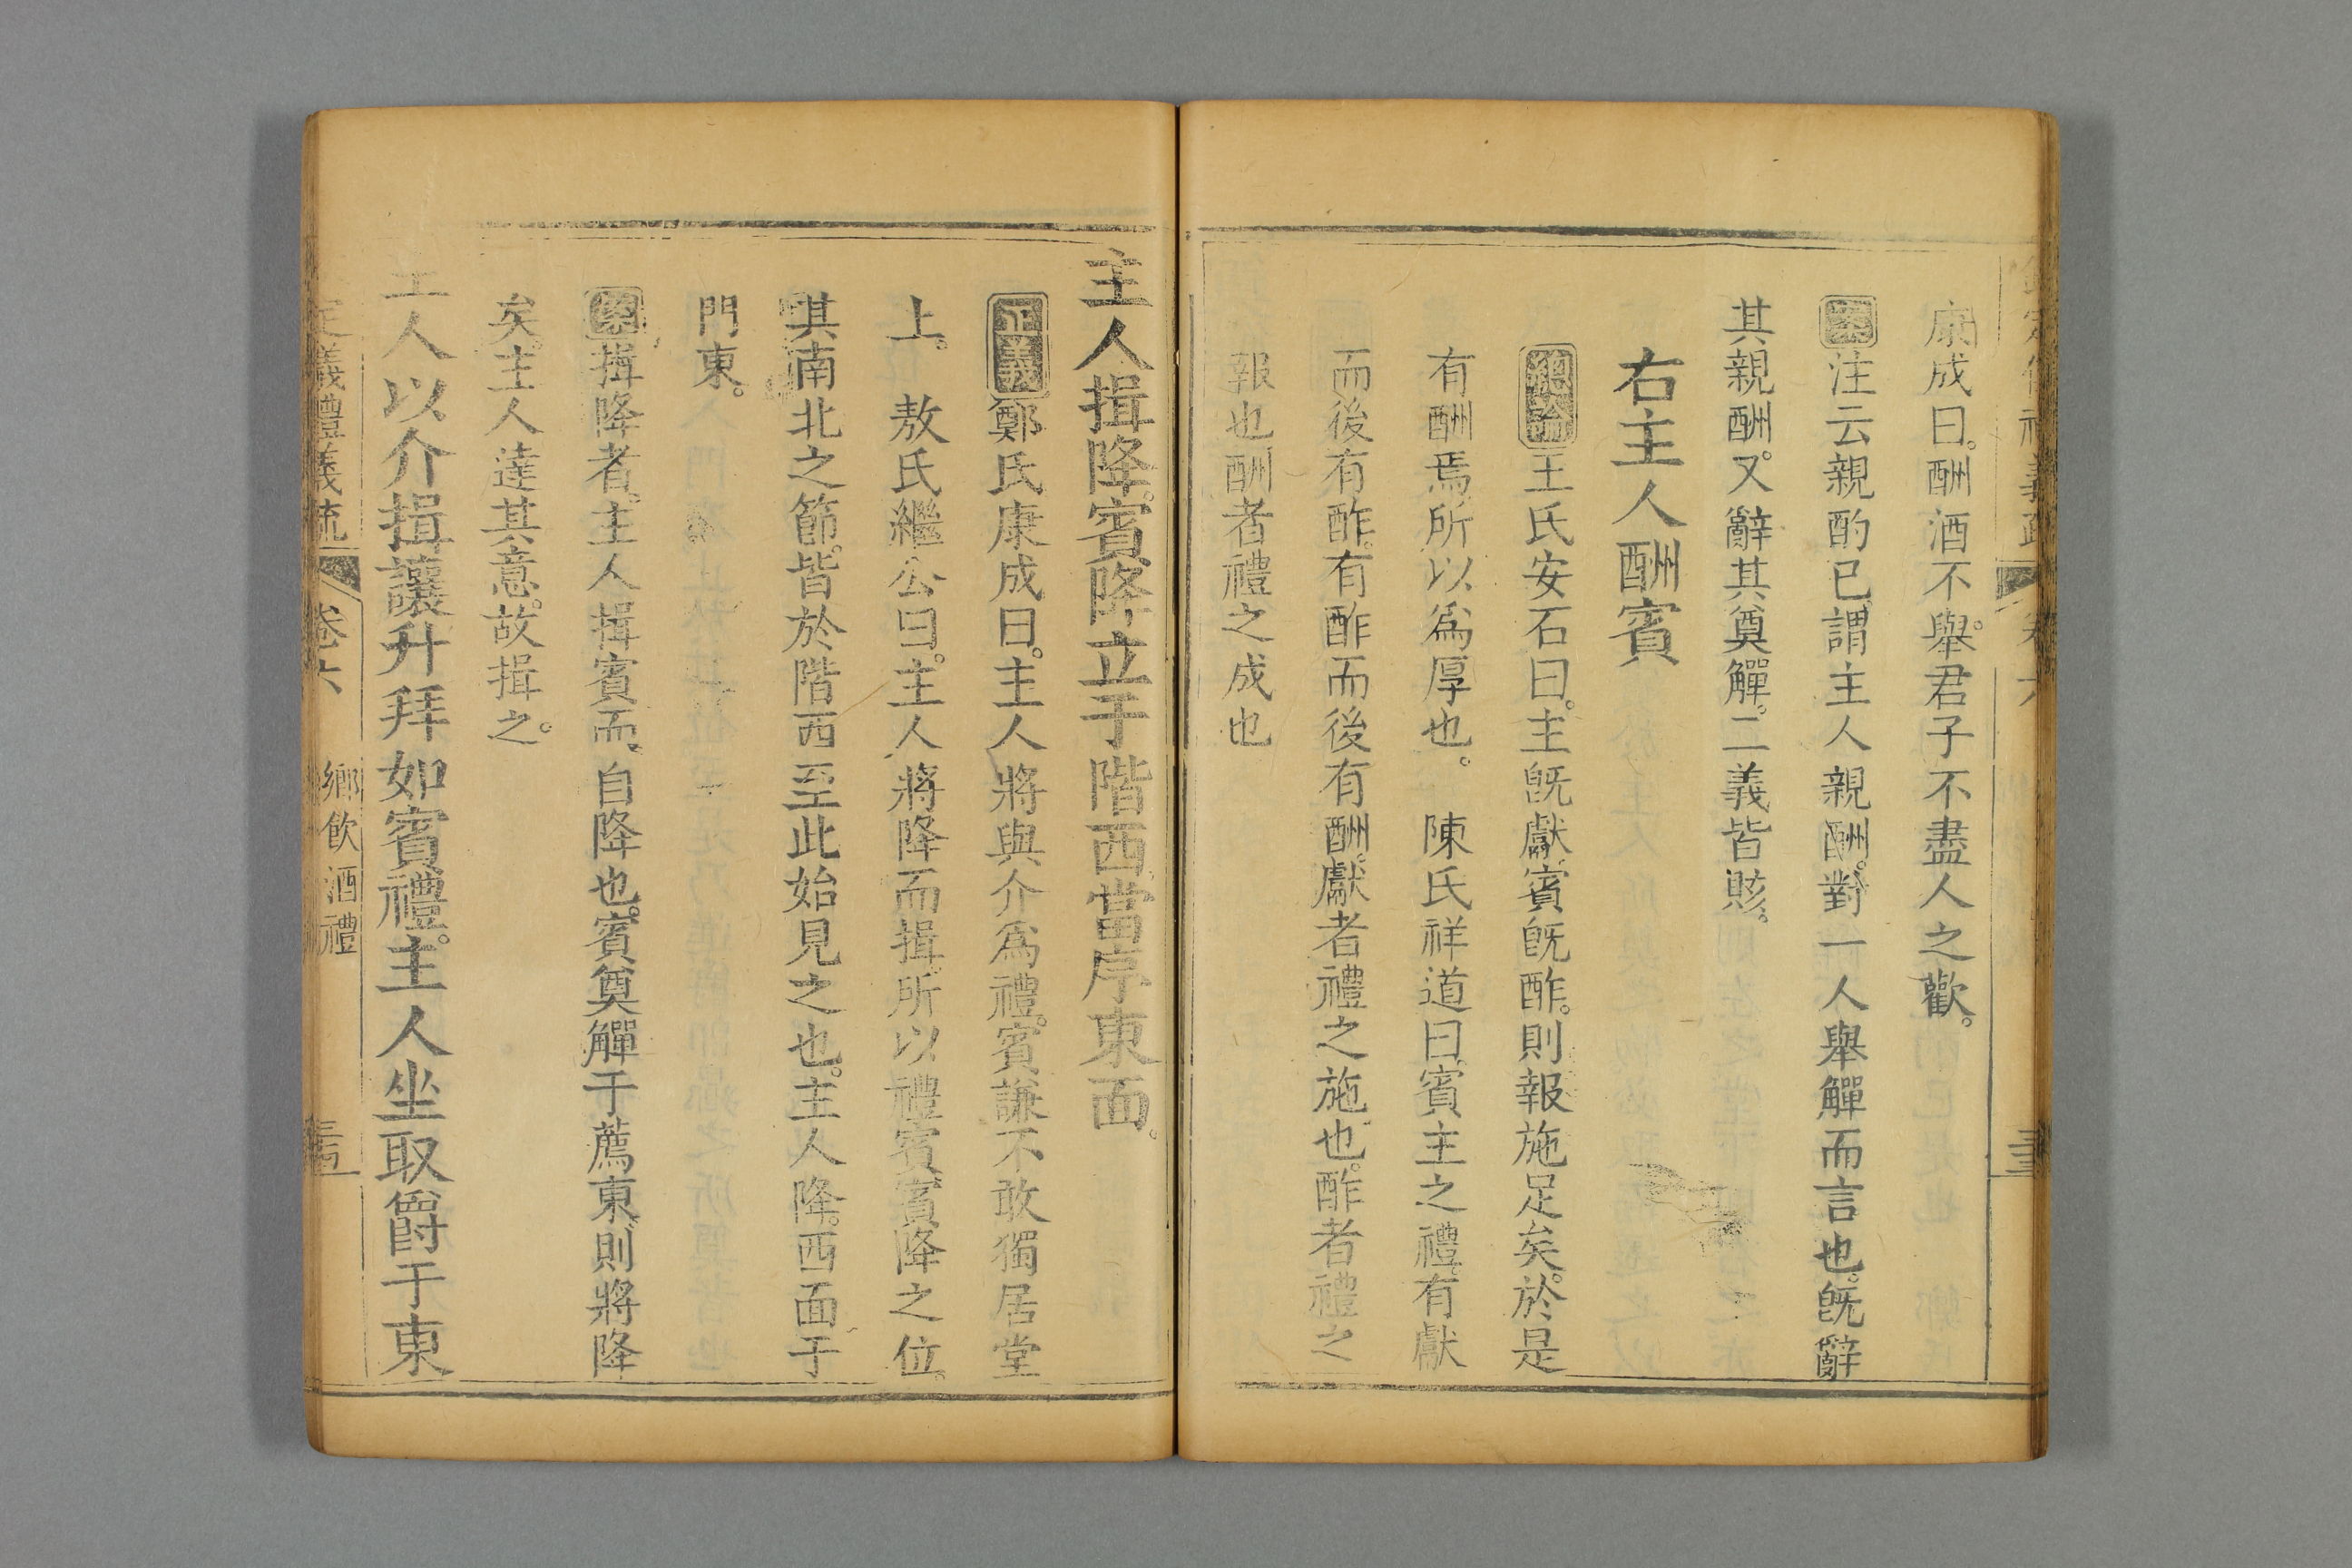 康成曰。酬酒不舉。君子不盡人之歡。
案注云親酌已謂主人親酬。對一人舉觶而言也。旣辭
其親酬。又辭其奠觶。二義皆賅。
右主人酬賓
總論王氏安石曰。主旣獻賓旣酢。則報施足矣。於是
有酬焉所以爲厚也。 陳氏祥道曰賓主之禮。有獻
而後有酢。有酢而後有酬。獻者禮之施也。酢者禮之
報也酬者禮之成也
主人揖降。賓降立于階西當序東面。
正義鄭氏康成曰。主人將與介爲禮。賓謙不敢獨居堂
上。 敖氏繼公曰。主人將降而揖。所以禮賓。賓降之位。
其南北之節。皆於階西至此始見之也。主人降。西面于
門東。
案揖降者。主人揖賓而自降也。賓奠觶于薦東。則將降
矣。主人達其意。故揖之。
主人以介揖讓升拜如賓禮。主人坐取爵于東
定義禮義疏 卷六 鄉飲酒禮